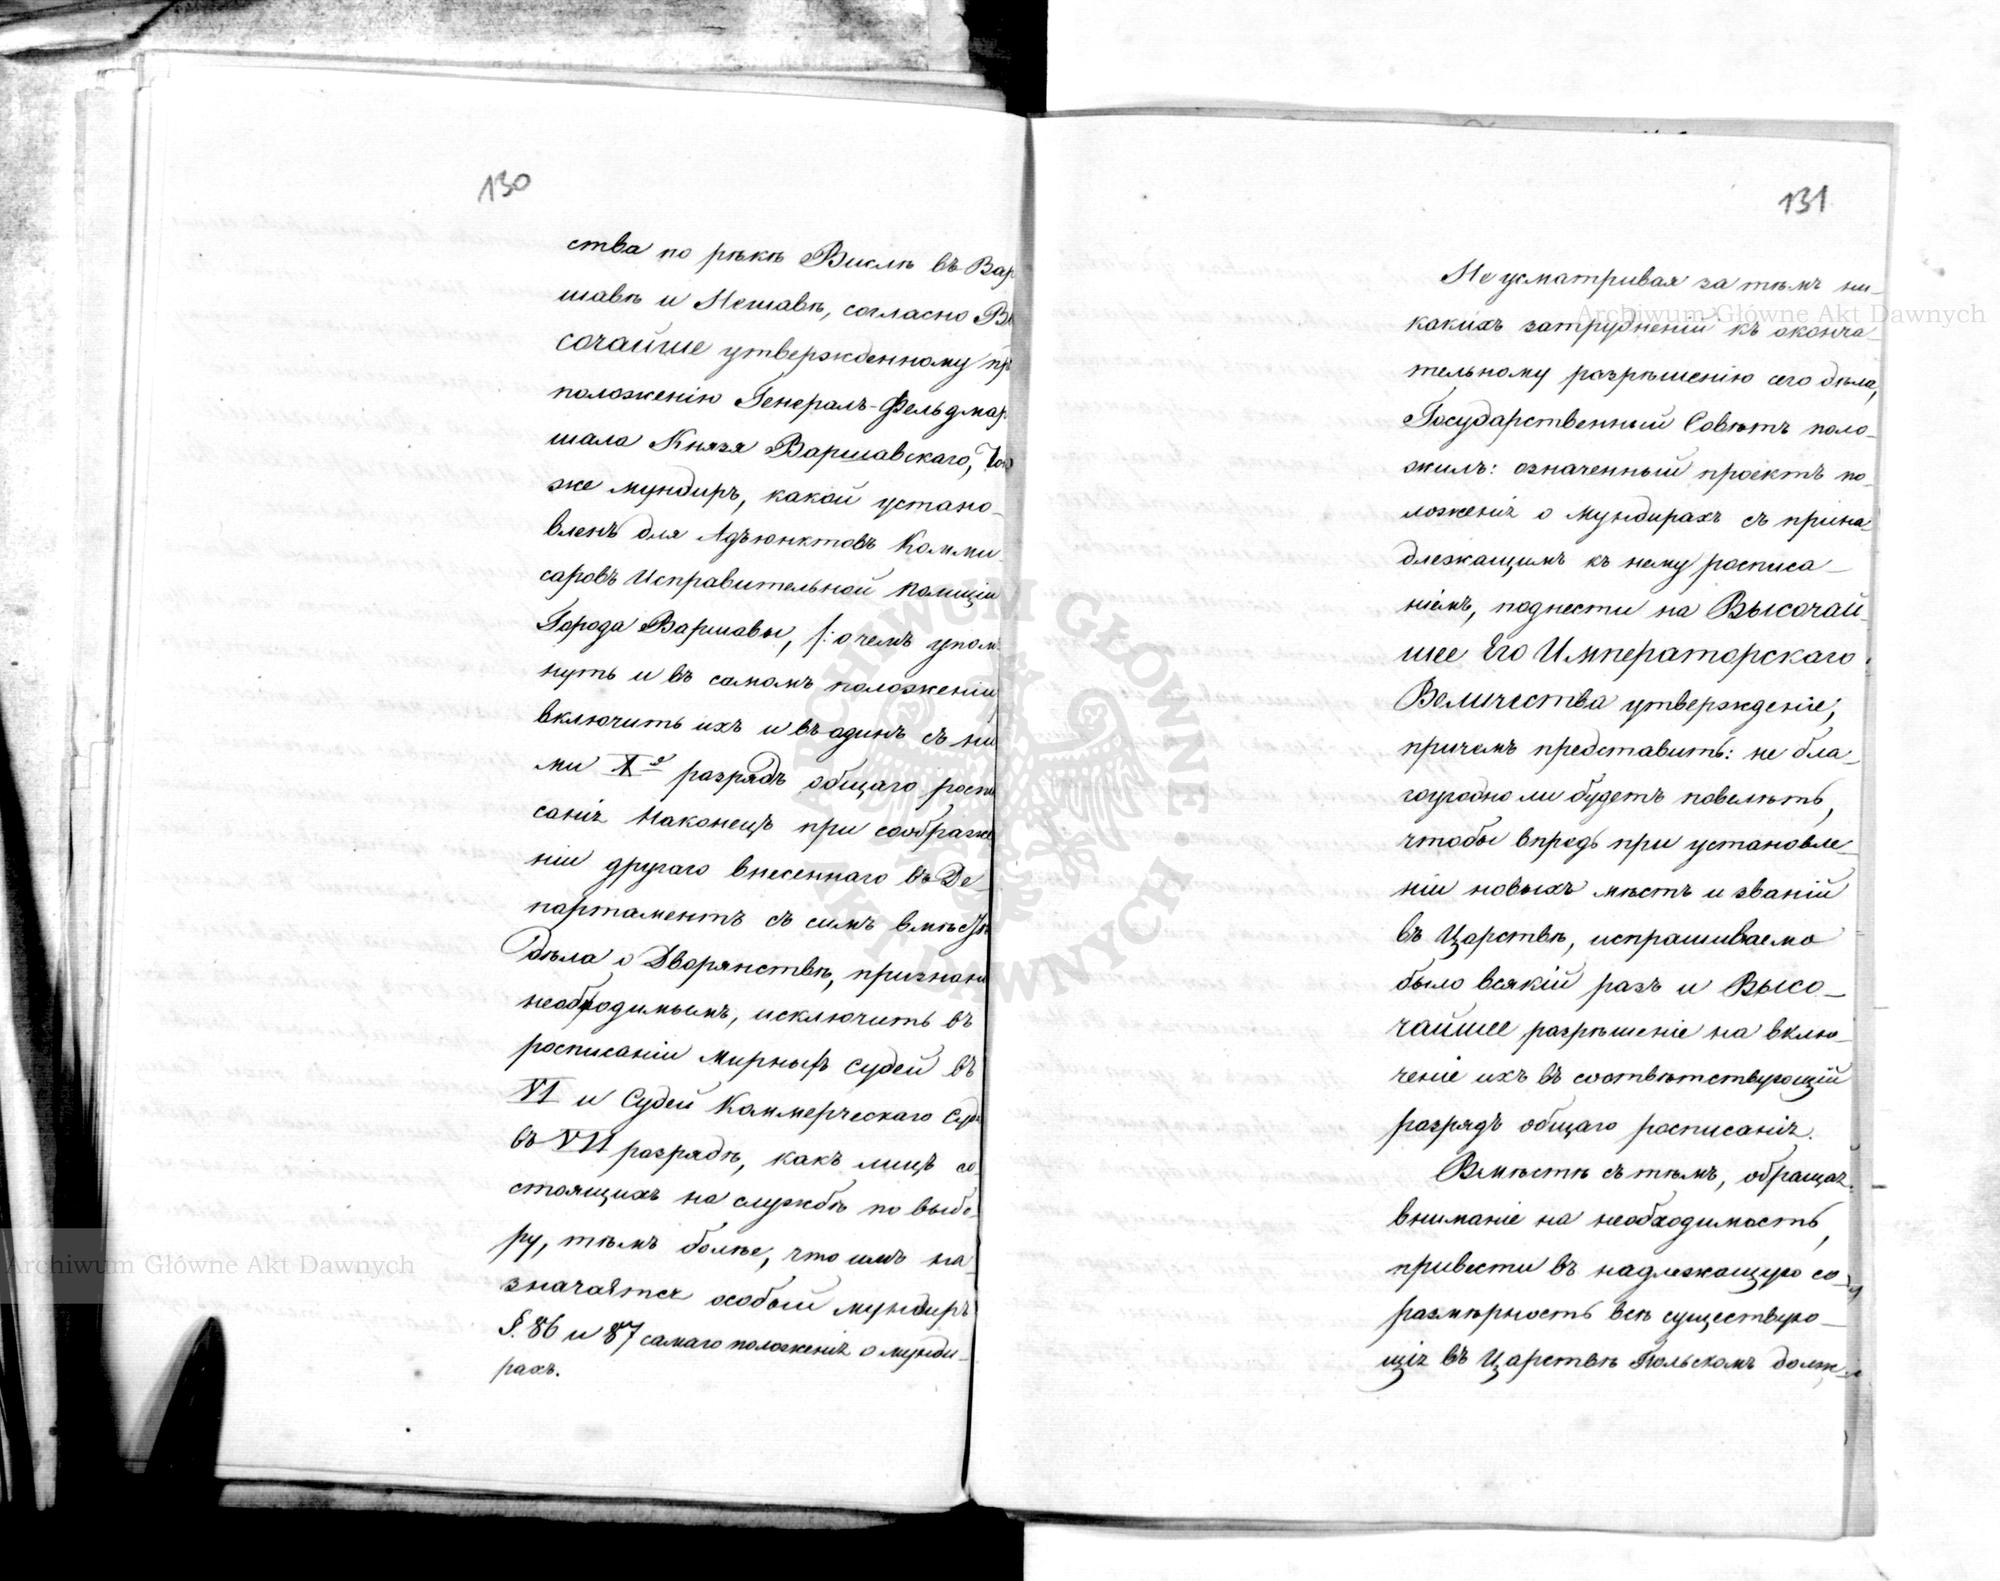 130
ства по рѣкѣ Вислѣ въ Вар
шавѣ и Нешавѣ, согласно Вы
сочайше утвержденному пр
положенію Генералъ-Фельдмар
шала Князя Варшавскаго, тот
же мундиръ, какой устано-
вленъ для Адъюнктовъ Комми
саровъ Исправительной Полиціи
Города Варшавы, /: о чемъ упом
нуть и въ самомъ положеніи
включить ихъ и въ одинъ съ ни
ми Xй разрядъ общаго роспи
санія Наконецъ при соображе
ніи другаго внесеннаго въ Де
партаментъ съ симъ вмѣстѣ
дѣла о Дворянствѣ, признано
необходимымъ, исключить въ
росписаніи Мирныхъ Судей въ
VI и Судей Коммерческаго Суда
въ VII разрядѣ, какъ лицъ со
стоящихъ на службѣ по выбо
ру, тѣмъ болѣе, что имъ на-
значается особый мундиръ
§. 86 и 87 самаго положенія о мунди-
рахъ.
131
Не усматривая за тѣмъ ни-
какихъ затрудненій къ оконча-
тельному разрѣшенію сего дѣла,
Государственный Совѣтъ поло-
жилъ: означенный проектъ по-
ложенія о мундирахъ съ прина
длежащимъ къ нему росписа-
ніемъ, поднести на Высочай-
шее Его Императорскаго
Величества утвержденіе;
причемъ представить: не бла-
гоугодно ли будетъ повелѣть,
чтобы впредь при установле-
ніи новыхъ мѣстъ и званій
въ Царствѣ, испрашиваемо
было всякій разъ и Высо-
чайшее разрѣшеніе на вклю-
ченіе ихъ въ соотвѣтствующій
разрядъ общаго росписанія.
Вмѣстѣ съ тѣмъ, обращая
вниманіе на необходимость,
привести въ надлежащую со-
размѣрность всѣ существую-
щія въ Царствѣ Польскомъ долж-
Archiwum Główne Akt Dawnych
Archiwum Główne Akt Dawnych
ARCHIWUM GŁÓWNE AKT DAWNYCH